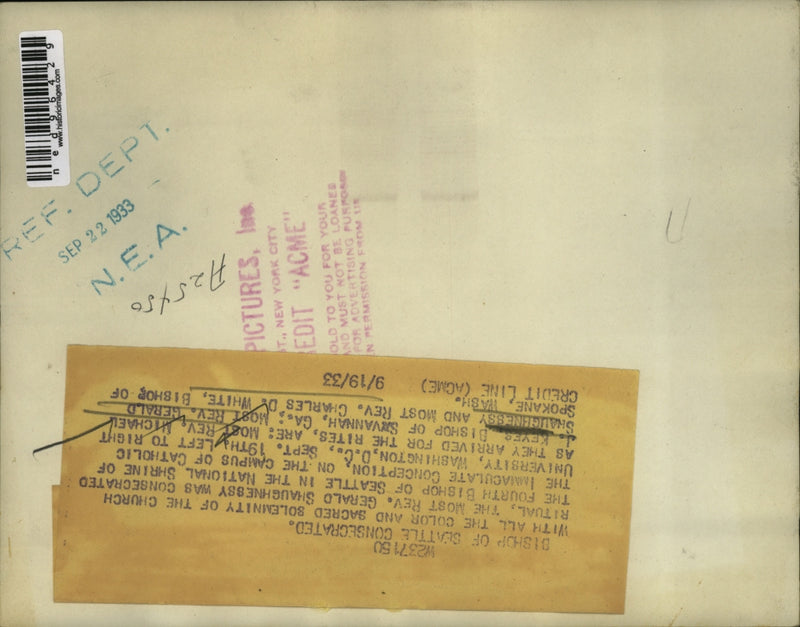 ned96429
www.historicimages.com
REF. DEPT.
SEP 22 1933
N. E. A.
A25450
PICTURES, Inc.
ST., NEW YORK CITY
EDIT "ACME"
OLD TO YOU FOR YOUR
AND MUST NOT BE LOANED
FOR ADVERTISING PURPOSES
N PERMISSION FROM US
W237150
BISHOP OF SEATTLE CONSECRATED.
WITH ALL THE COLOR AND SACRED SOLEMNITY OF THE CHURCH
RITUAL, THE MOST REV. GERALD SHAUGHNESSY WAS CONSECRATED
THE FOURTH BISHOP OF SEATTLE IN THE NATIONAL SHRINE OF
THE IMMACULATE CONCEPTION, ON THE CAMPUS OF CATHOLIC
UNIVERSITY, WASHINGTON, D.C., SEPT. 19TH. LEFT TO RIGHT
AS THEY ARRIVED FOR THE RITES, ARE: MOST REV. MICHAEL
J. KEYES, BISHOP OF SAVANNAH, GA.; MOST REV. GERALD
SHAUGHNESSY AND MOST REV. CHARLES D. WHITE, BISHOP OF
SPOKANE, WASH.
CREDIT LINE (ACME) 9/19/33